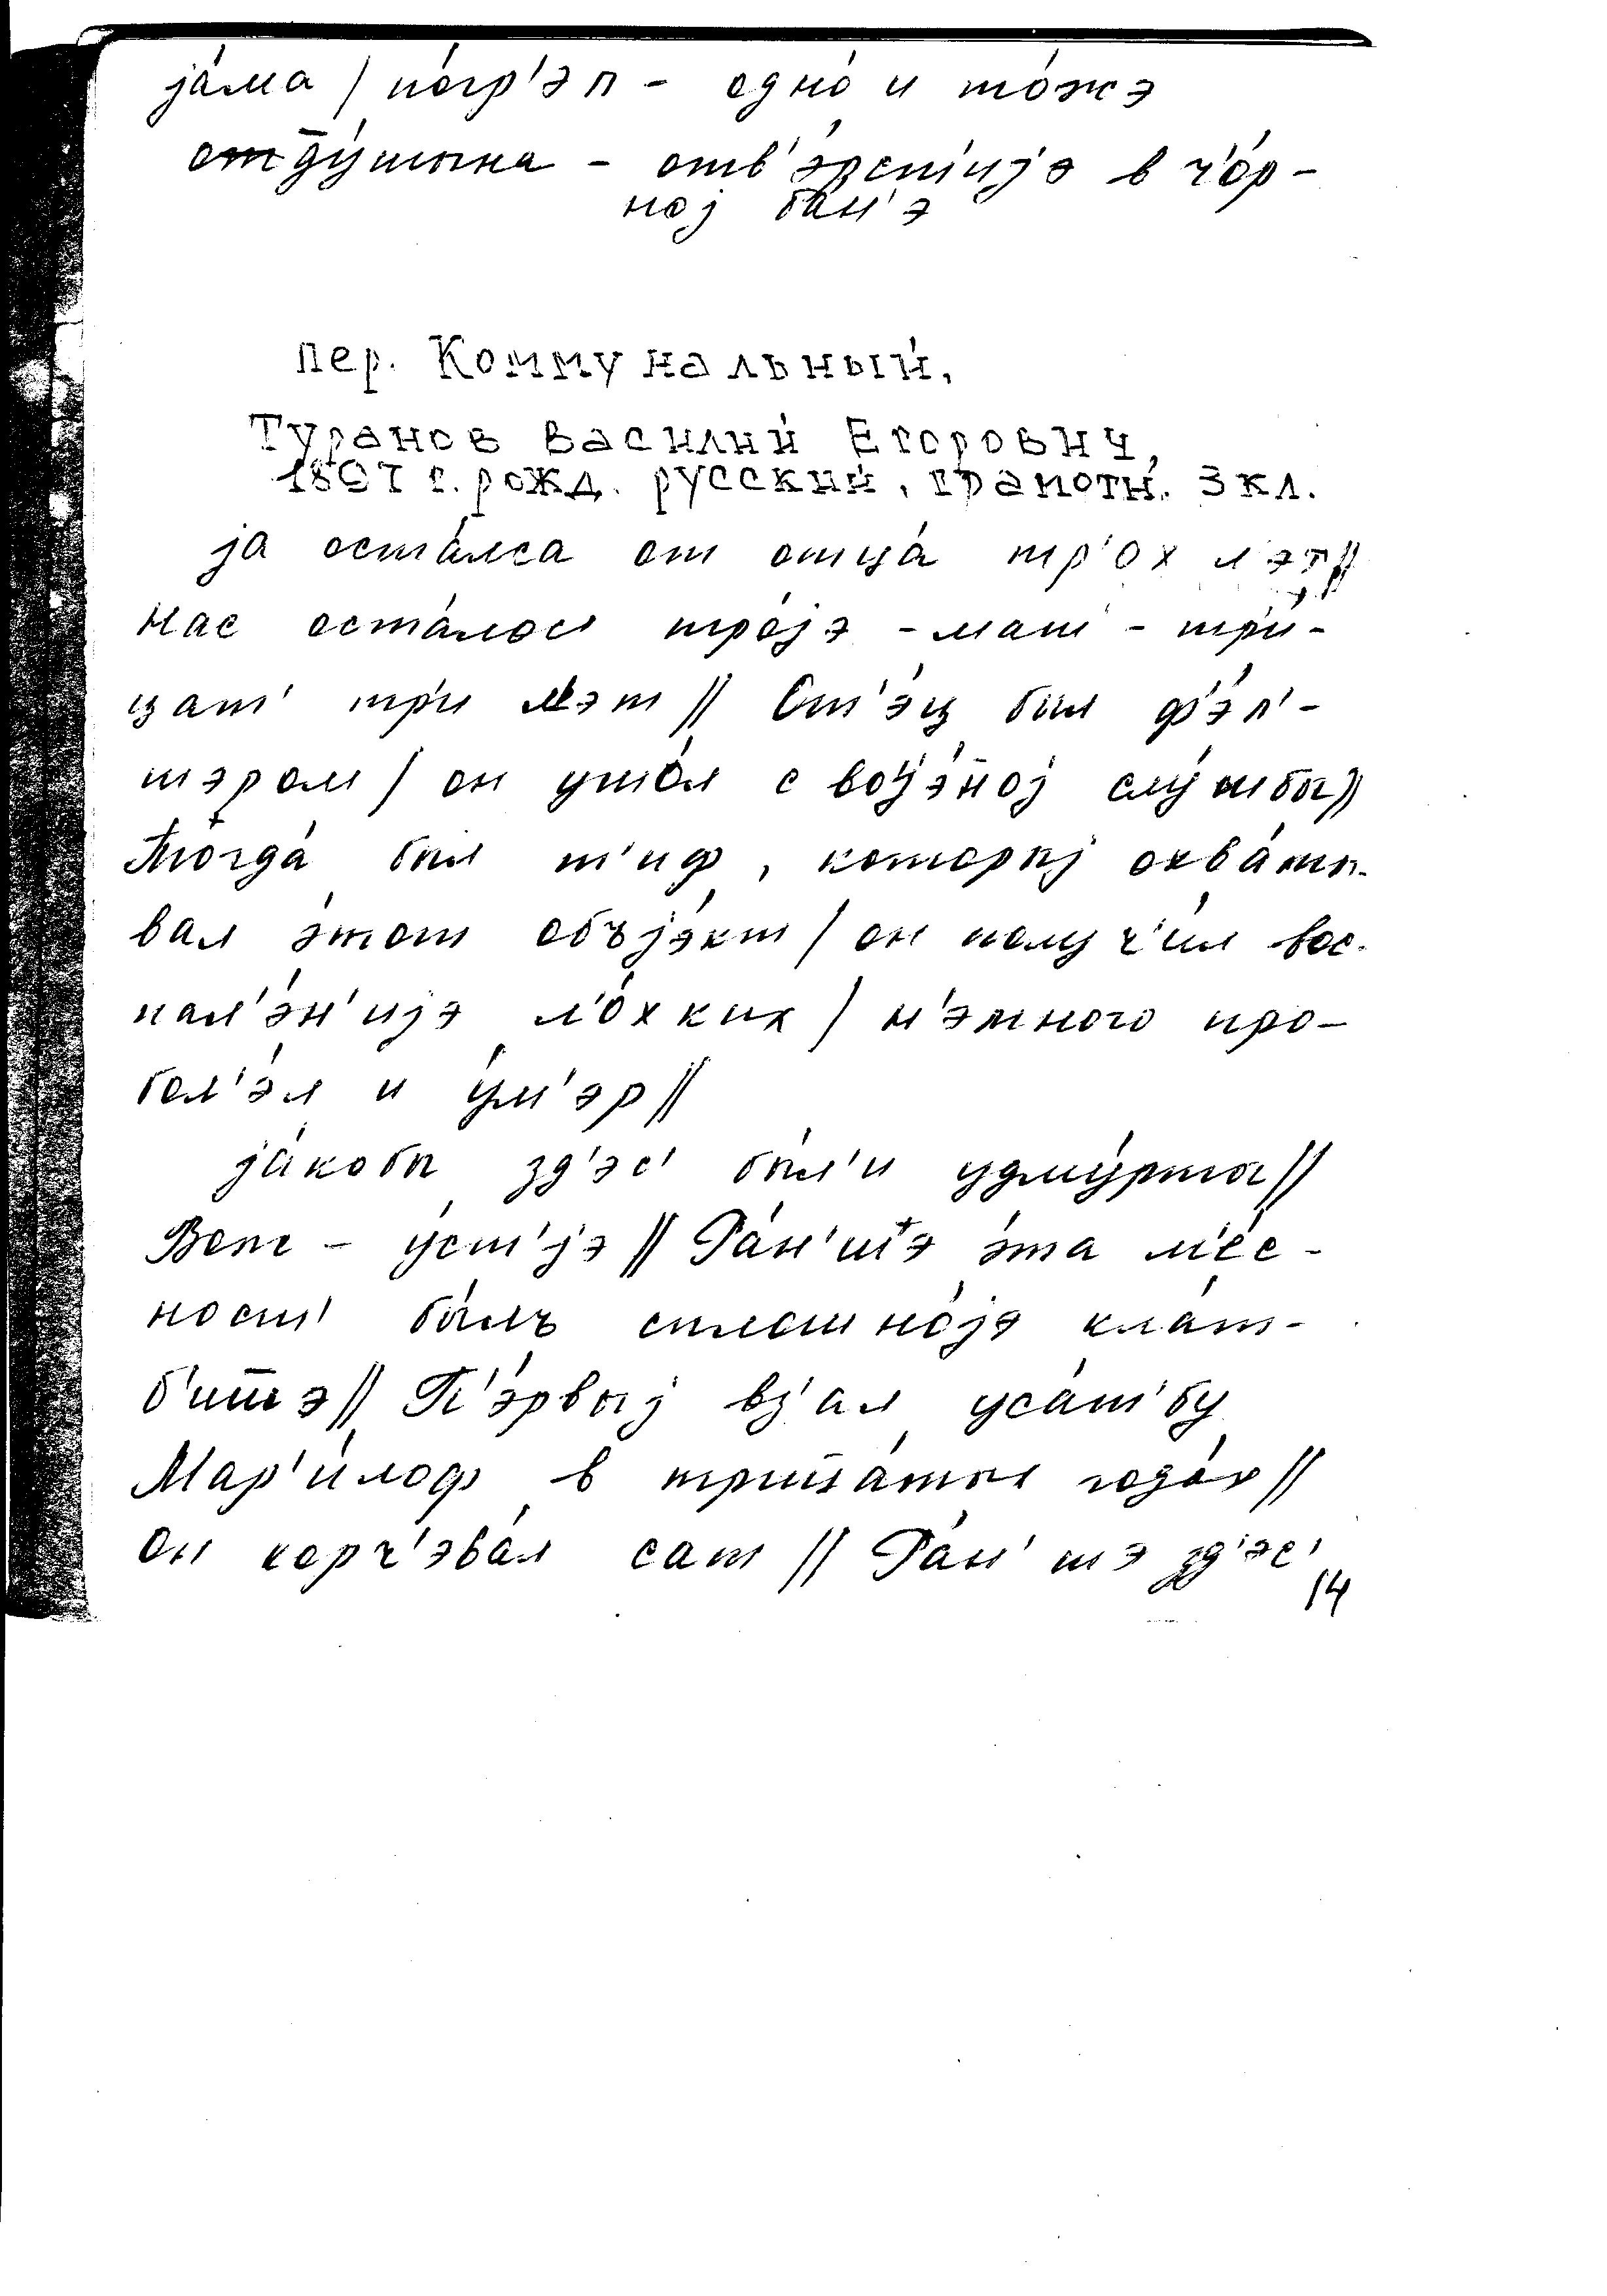 jа́ма / по́гр'эп - одно́ и то́жэ
отду́шына - отв'э́рст'ијэ в ч'о́р-
ној ба́н'э
пер. Коммунальный,
Туранов Василий Егорович,
1897 г. рожд. русский, грамотн. 3 кл.
jа оста́лса от отца́ тр'ох л'эт //
Нас оста́лос' тро́јэ - мат' - три́-
цат' тр'и лэт // От'э́ц был ф'э́л'-
шэром / он ушо́л с војэ́ной слу́жбы //
Тогда́ был т'иф, которыј охва́ты-
вал э́тот объjэ́кт / он получ'и́л вос-
пал'э́н'ијэ л'о́хких / н'эмного про-
бол'э́л и у́м'эр //
jа́кобы зд'эс' бы́л'и удму́рты //
Вот - у́ст'јэ // Ра́н'шэ э́та м'е́с-
ност' былъ сплошно́јэ кла́т-
б'ишэ // П'э́рвыј вз'ал уса́т'бу
Мар'и́лоф в трица́тых года́х //
Он корч'эва́л сат // Ра́н'шэ зд'эс'
14